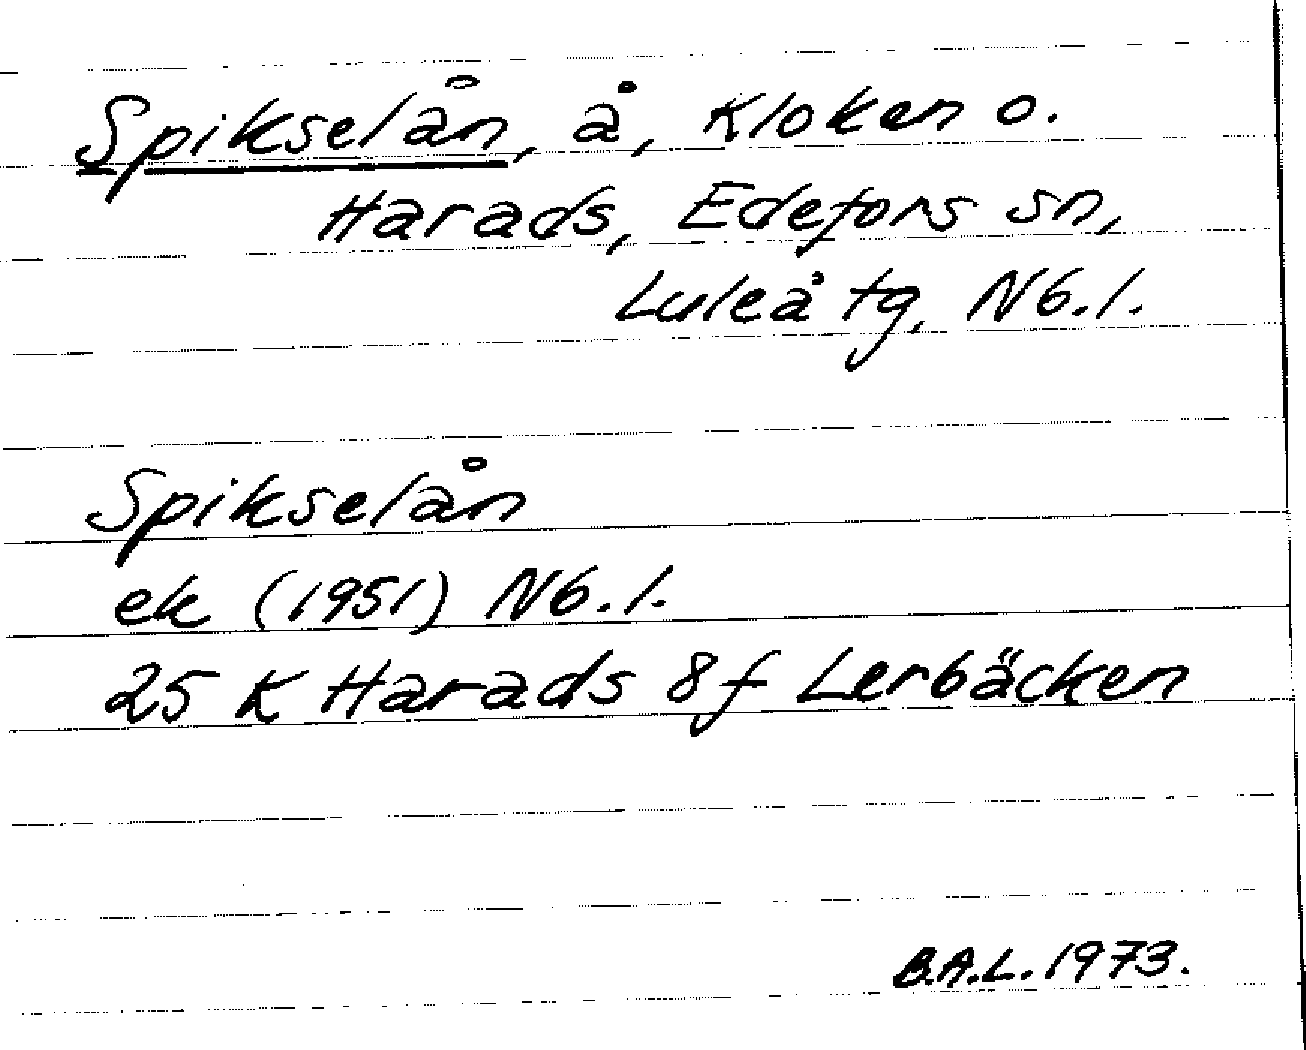 Spikselån, å, Kloken o.
Harads, Edefors sn,
Luleå tg, Nb.l.
Spikselån
ek (1951) Nb.l.
25 K Harads 8f Lerbäcken
B.A.L. 1973.